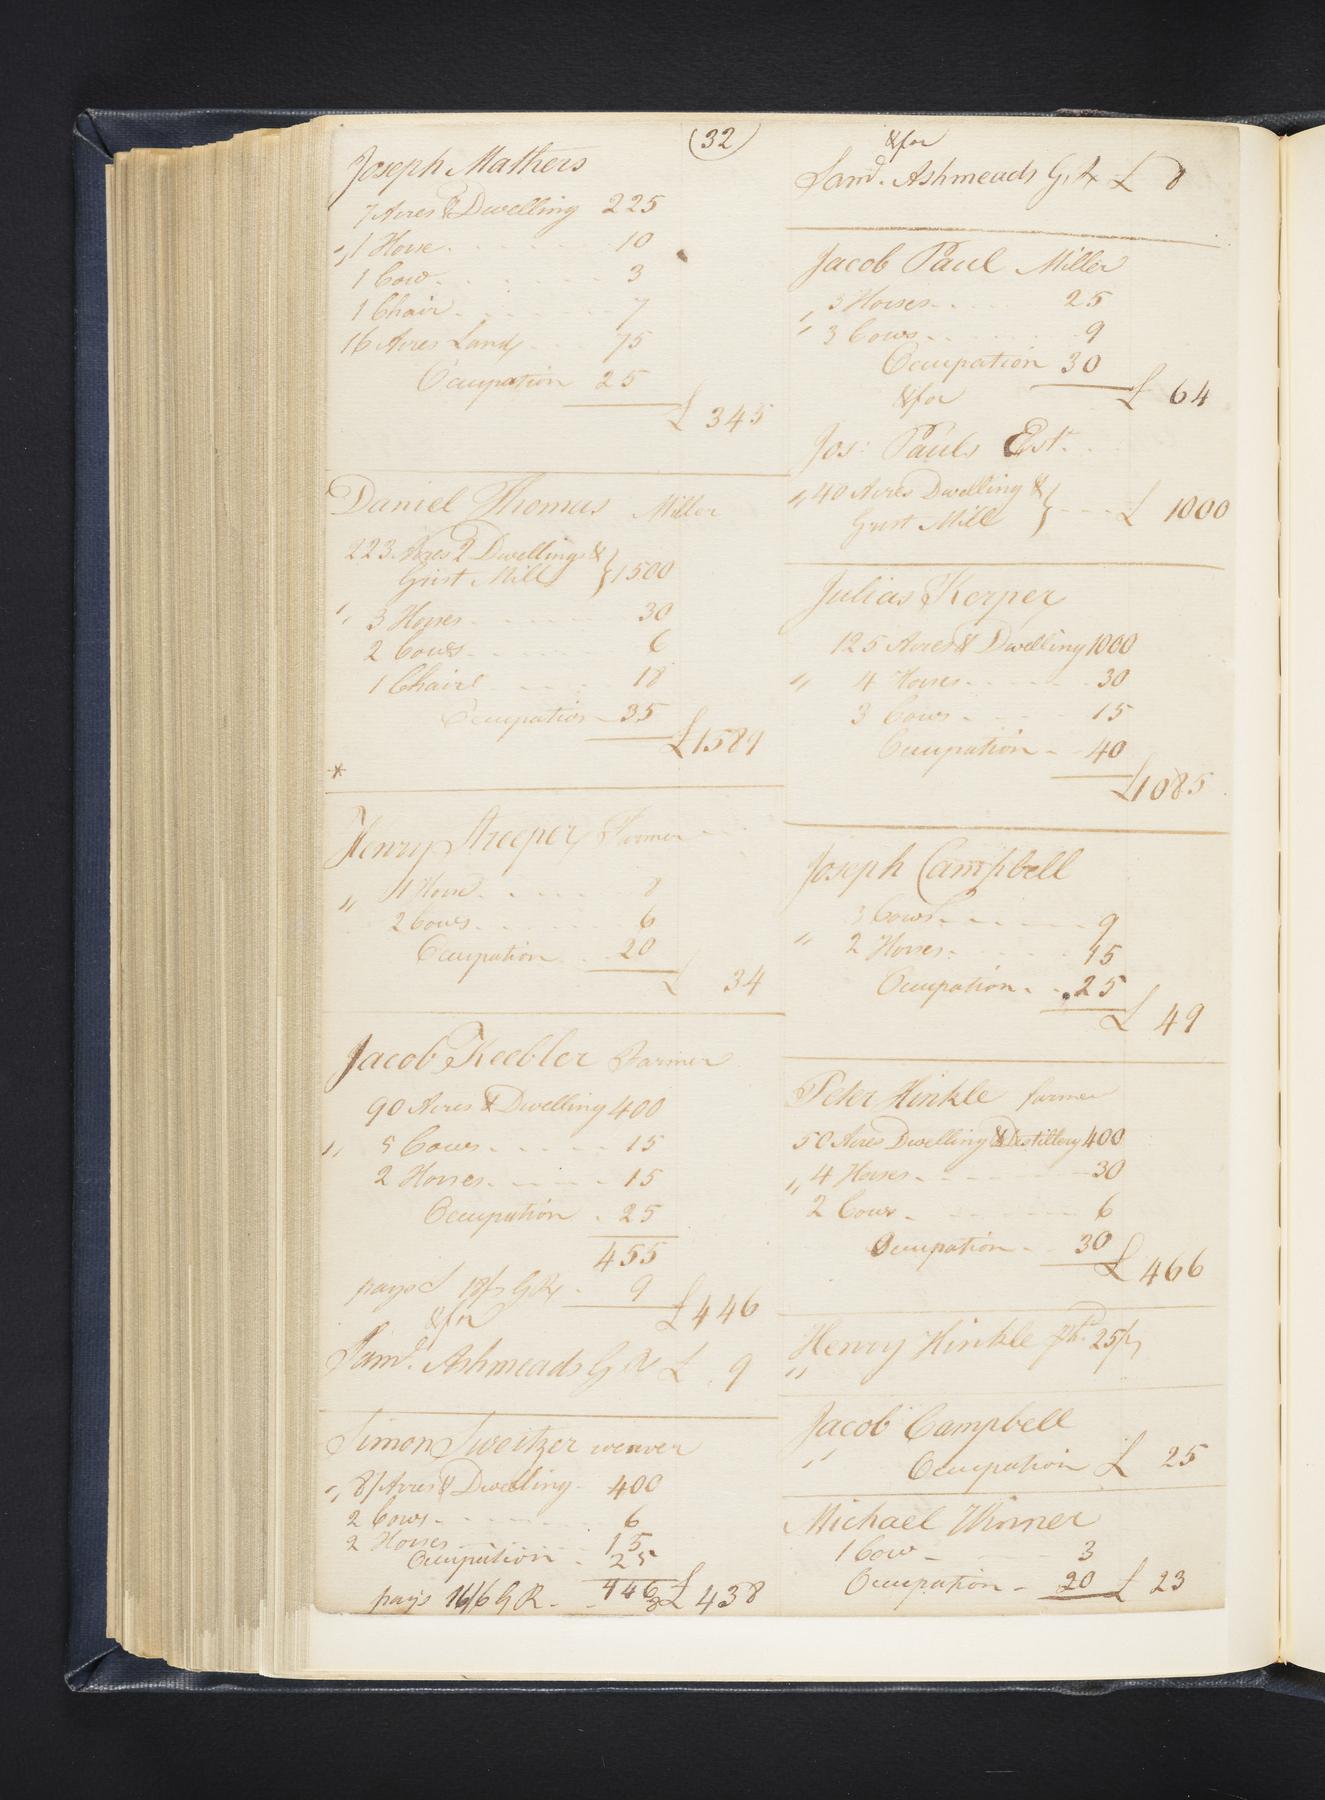 (32)
Joseph Mathers
7 Acres & Dwelling 225
1 Horse 10
1 Cow 3
1 Chair 7
16 Acres Land 75
Occupation 25
£ 345
Daniel Thomas Miller
223 Acres 2 Dwellings &
Grist Mill } 1500
3 Horses 30
2 Cows 6
1 Chair 18
Occupation 35
£ 1589
*
Henry Streeper Farmer
1 Horse 8
2 Cows 6
Occupation 20
£ 34
Jacob Keebler Farmer
90 Acres & Dwelling 400
5 Cows 15
2 Horses 15
Occupation 25
455
pays 18/ GR 9
£ 446
&for
Saml. Ashmeads G R £ 9
Simon Sweitzer weaver
87 Acres & Dwelling 400
2 Cows 6
2 Horses 15
Occupation 25
446
pays 16/6 G R 8 £ 438
&for
Saml. Ashmeads G. R £ 8
Jacob Paul Miller
3 Horses 25
3 Cows 9
Occupation 30
£ 64
&for
Jos: Pauls Est.
40 Acres Dwelling &
Grist Mill } £ 1000
Julias Kerper
125 Acres & Dwelling 1000
4 Horses 30
3 Cows 15
Occupation 40
£ 1085
Joseph Campbell
3 Cows 9
2 Horses 15
Occupation 25
£ 49
Peter Hinkle farmer
50 Acres Dwelling & Destillery 400
4 Horses 30
2 Cows 6
Occupation 30
£ 466
Henry Hinkle 25/
Jacob Campbell
Occupation £ 25
Michael
1 Cow 3
Occupation 20 £ 23